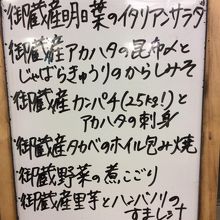 ・御蔵産明日葉のイタリアンサラダ
・御蔵産アカハタの昆布〆と
じゃばらきゅうりのからしみそ
・御蔵産カンパチ(2.5kg!)と
アカハタの刺身
・御蔵産タカベのホイル包み焼
・御蔵野菜の煮こごり
・御蔵産里芋とハンバノリの
すまし汁